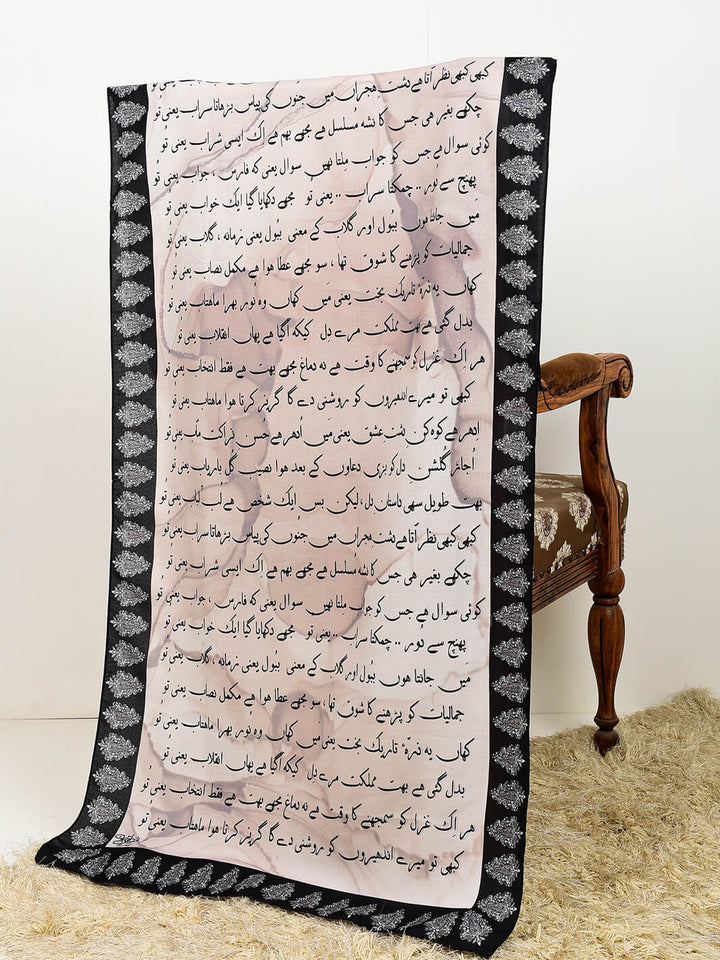 کبھی کبھی نظر آتا ہے دشت ہجراں میں جنوں کی پیاس بڑھاتا سراب یعنی تُو
چکھے بغیر ہی جس کا نشہ مسلسل ہے مجھے بہم ہے اک ایسی شراب یعنی تُو
کوئی سوال ہے جس کو جواب ملتا نہیں سوال یعنی کہ فارس ، جواب یعنی تُو
پہنچ سے دُور .. چمکتا سراب .. یعنی تُو مجھے دکھایا گیا ایک خواب یعنی تُو
میں جانتا ہوں ببُول اور گلاب کے معنی ببُول یعنی زمانہ ، گلاب یعنی تُو
جمالیات کو پڑھنے کا شوق تھا ، سو مجھے عطا ہوا ہے مکمل نصاب یعنی تُو
کہاں یہ ذرّہٴ تاریک بخت یعنی میں کہاں وہ نُور بھرا ماہتاب یعنی تُو
بدل گئی ہے بہت مملکت مرے دل کی کہ آگیا ہے یہاں انقلاب یعنی تُو
ہر اِک غزل کو سمجھنے کا وقت ہے نہ دماغ مجھے بہت ہے فقط انتخاب یعنی تُو
کبھی تو میرے اندھیروں کو روشنی دے گا گریز کرتا ہوا ماہتاب یعنی تُو
اِدھر ہے کوہ کن دشت عشق یعنی میں اُدھر ہے حسن نزاکت مآب یعنی تُو
اُجاڑ گلشن دل کو بڑی دعاوں کے بعد ہوا نصیب گل باریاب یعنی تُو
بہت طویل سہی داستان دل ، لیکن بس ایک شخص ہے لب لباب یعنی تُو
کبھی کبھی نظر آتا ہے دشت ہجراں میں جنُوں کی پیاس بڑھاتا سراب یعنی تُو
چکھے بغیر ہی جس کا نشہ مُسلسل ہے مجھے بہم ہے اِک ایسی شراب یعنی تُو
کوئی سوال ہے جس کو جواب ملتا نہیں سوال یعنی کہ فارس ، جواب یعنی تُو
پہنچ سے دُور .. چمکتا سراب .. یعنی تُو مجھے دکھایا گیا ایک خواب یعنی تُو
میں جانتا ہوں ببُول اور گلاب کے معنی ببُول یعنی زمانہ ، گلاب یعنی تُو
جمالیات کو پڑھنے کا شوق تھا ، سو مجھے عطا ہوا ہے مکمل نصاب یعنی تُو
کہاں یہ ذرّہٴ تاریک بخت یعنی میں کہاں وہ نُور بھرا ماہتاب یعنی تُو
بدل گئی ہے بہت مملکت مرے دل کی کہ آگیا ہے یہاں انقلاب یعنی تُو
ہر اِک غزل کو سمجھنے کا وقت ہے نہ دماغ مجھے بہت ہے فقط انتخاب یعنی تُو
کبھی تو میرے اندھیروں کو روشنی دے گا گریز کرتا ہوا ماہتاب یعنی تُو